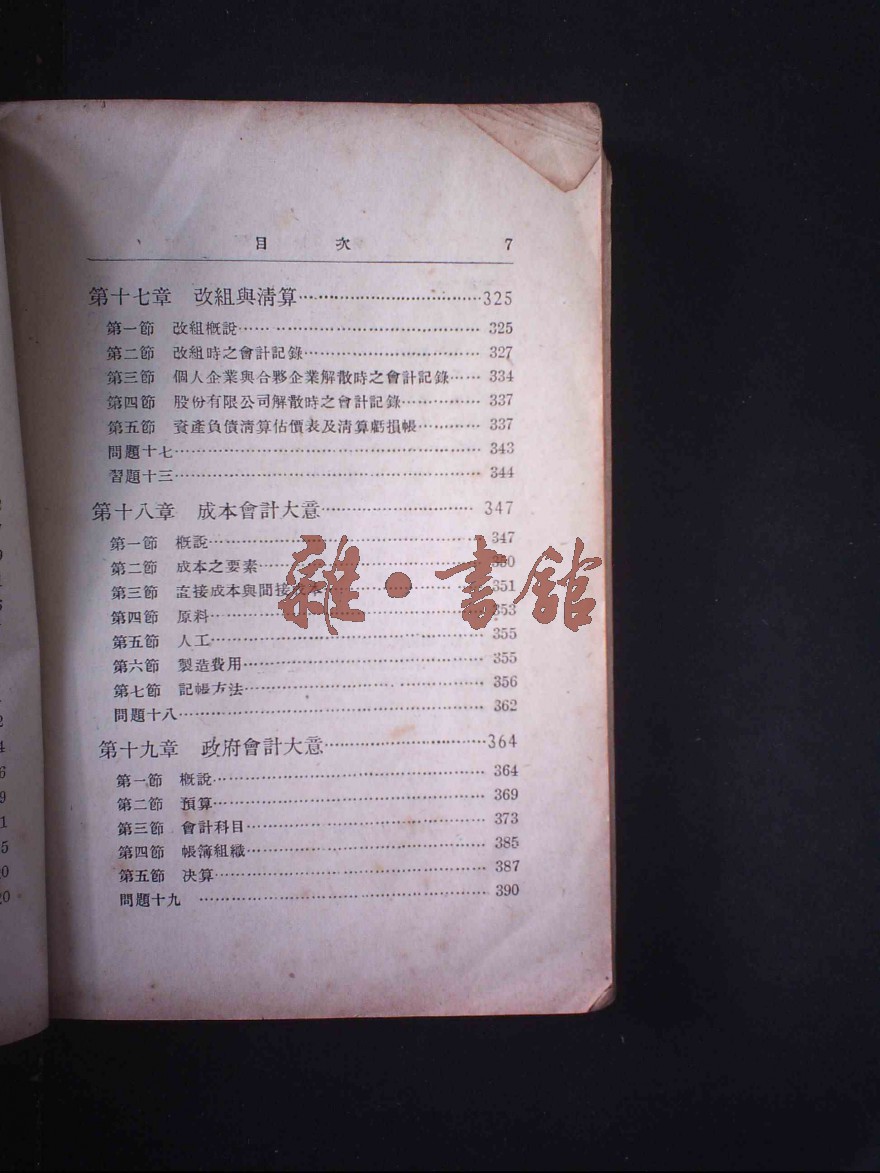 目 次 7
第十七章 改組與清算 325
第一節 改組概說 325
第二節 改組時之會計記錄 327
第三節 個人企業與合夥企業解散時之會計記錄 334
第四節 股份有限公司解散時之會計記錄 337
第五節 資產負債清算估價表及清算虧損帳 337
問題十七 343
習題十三 344
第十八章 成本會計大意 347
第一節 概說 347
第二節 成本之要素 350
第三節 直接成本與間接成本 351
第四節 原料 353
第五節 人工 355
第六節 製造費用 355
第七節 記帳方法 356
問題十八 362
第十九章 政府會計大意 364
第一節 概說 364
第二節 預算 369
第三節 會計科目 373
第四節 帳簿組織 385
第五節 決算 387
問題十九 390
雜·書館